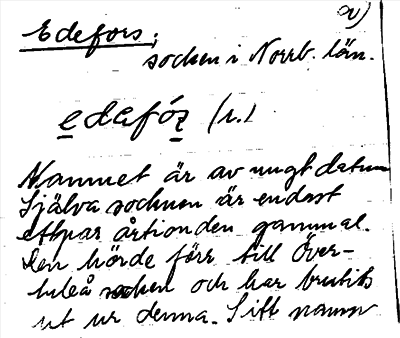 a)
Edefors,
socken i Norrb. län.
edafóz (n.)
Namnet är av ungt datum
Själva socknen är endast
ett par årtionden gammal.
Den hörde förr till Över-
luleå socken och har brutits
ut ur denna. Sitt namn